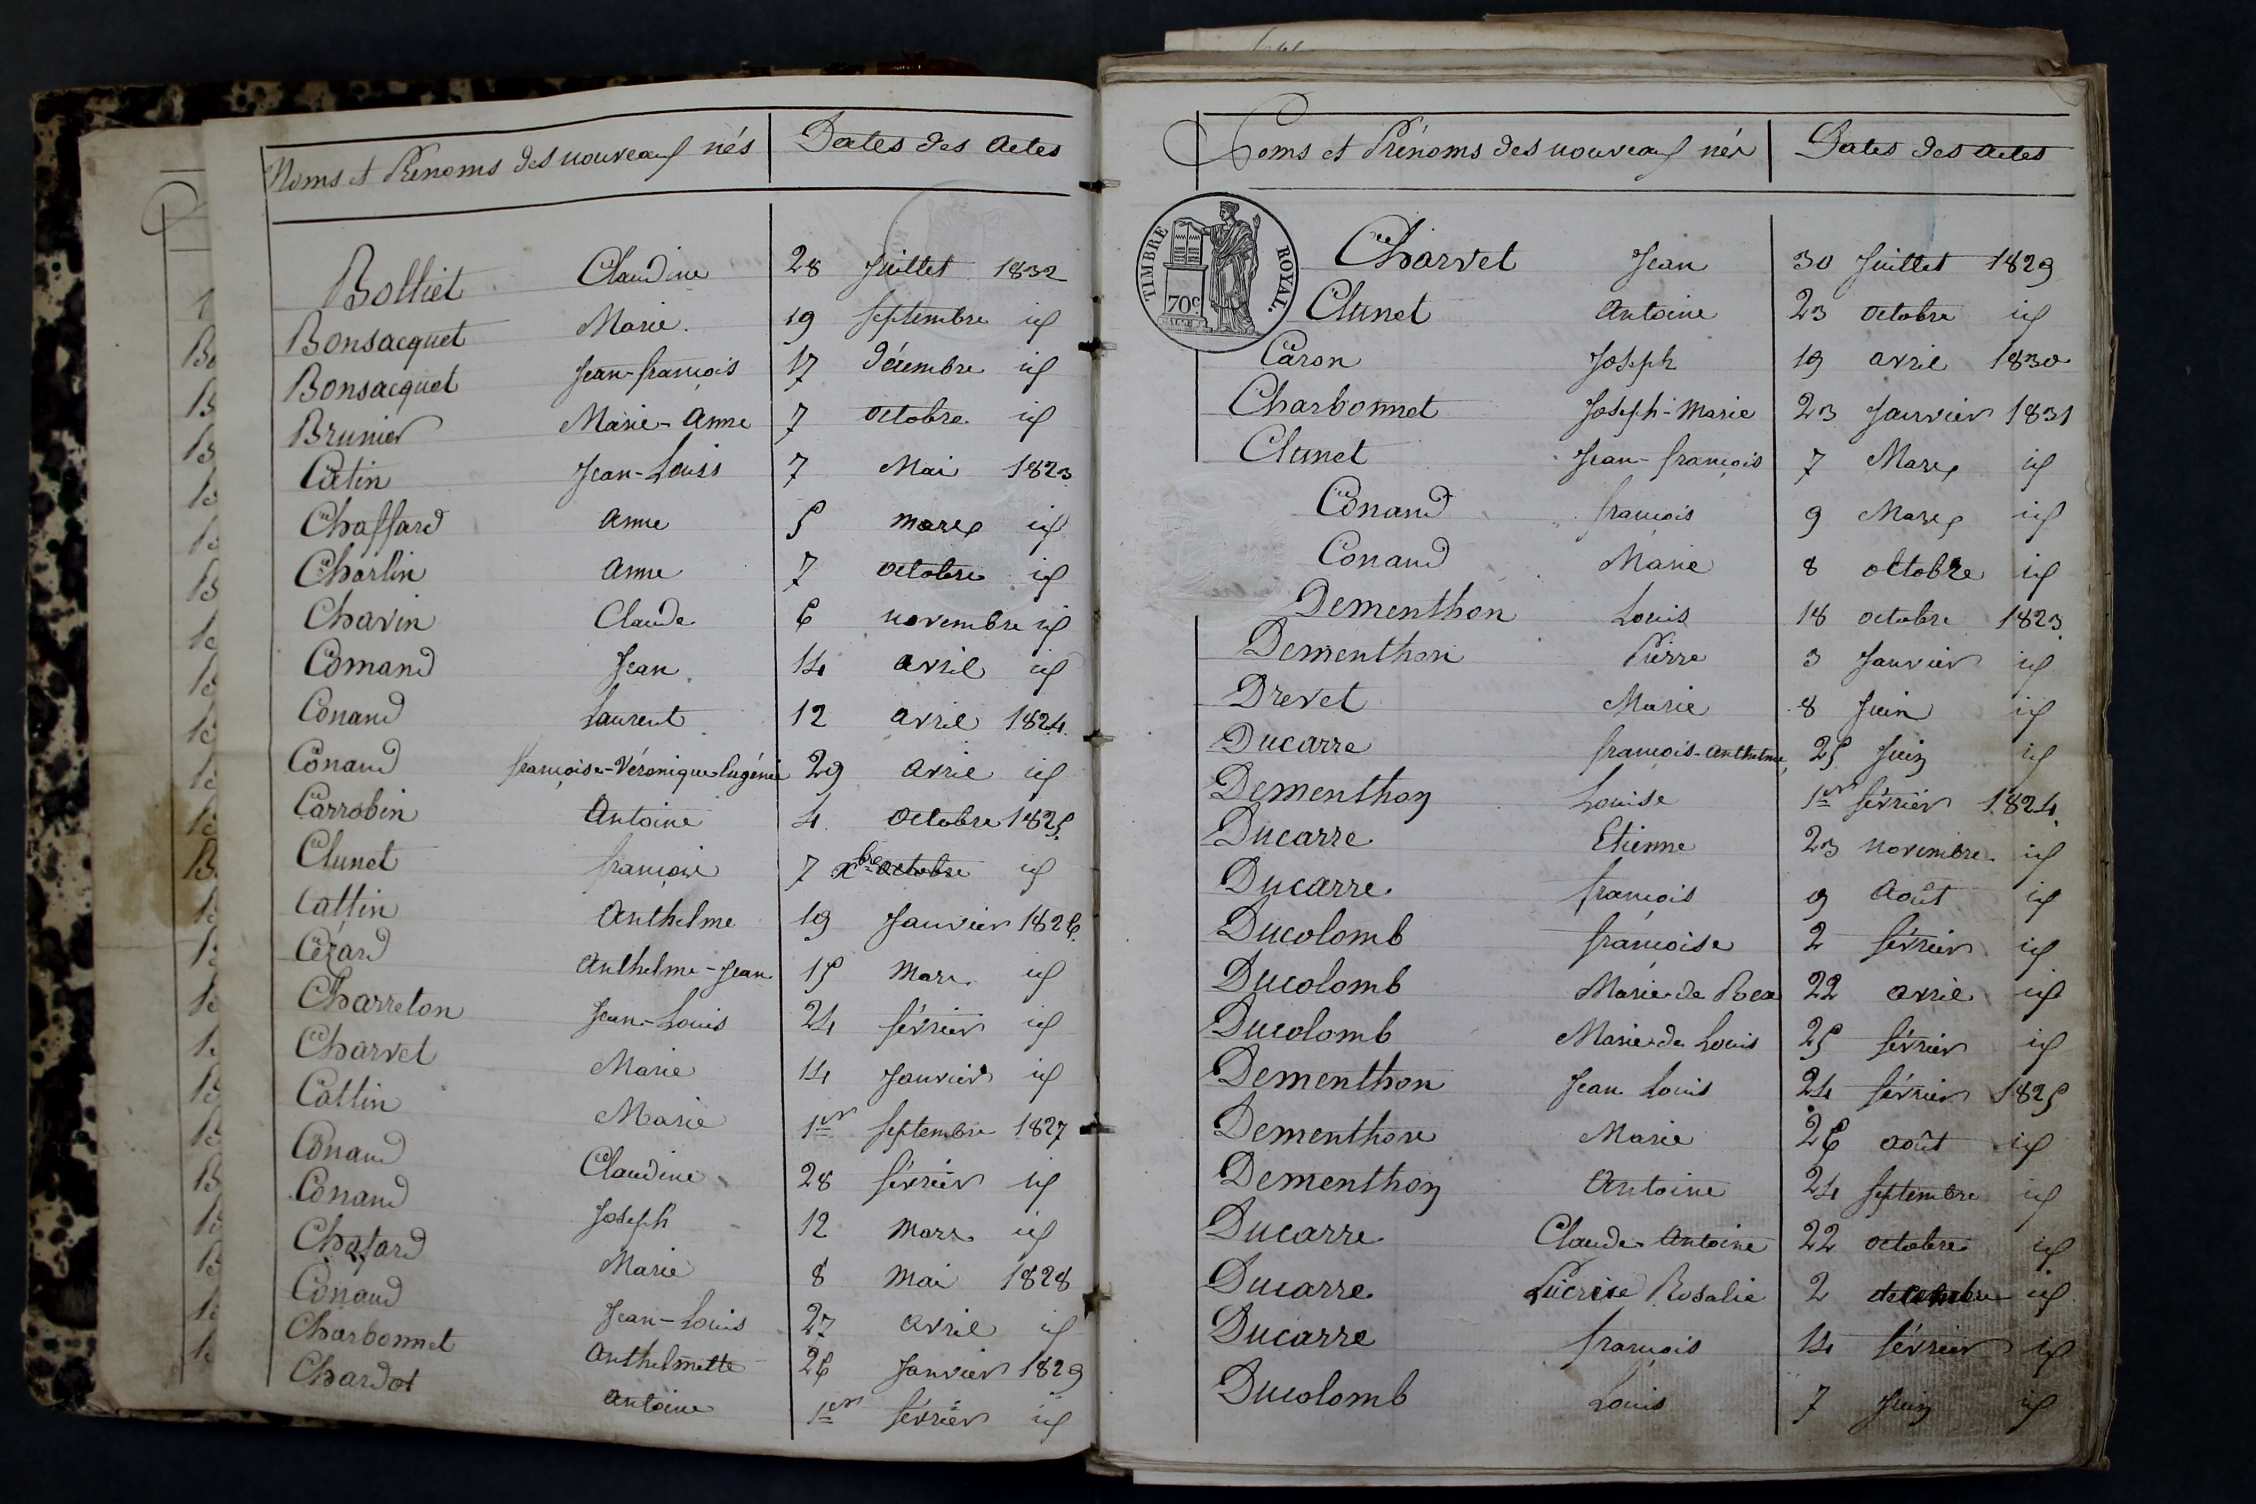 Noms et Prénoms des nouveaux nés Dates des Actes
Bolliet Claudine 28 Juillet 1832
Bonsacquet Marie 19 septembre id
Bonsacquet Jean-françois 17 décembre id
Brunier Marie-Anne 7 octobre id
Catin Jean-Louis 7 Mai 1823
Chaffard Anne 5 mars id
Charlin Anne 7 octobre id
Chavin Claude 6 novembre id
Comand Jean 14 avril id
Conand Laurent 12 avril 1824
Conand françoise-Véronique Eugénie 29 avril id
Carrobin Antoine 4 octobre 1825
Clunet 7 Xbre octobre id
Cattin Anthelme 19 Janvier 1826
Cézard Anthelme-Jean 15 Mars id
Charreton Jean-Louis 24 février id
Charvet Marie 14 Janvier id
Cattin Marie 1er septembre 1827
Conand Claudine 28 février id
Conand Joseph 12 Mars id
Marie 8 Mai 1828
Conand Jean-Louis 27 avril id
Charbonnet Anthelmette 26 Janvier 1829
Chardot Antoine 1er février id
Noms et Prénoms des nouveaux nés Dates des Actes
TIMBRE ROYAL.
70c
Charvet Jean 30 Juillet 1829
Clunet Antoine 23 octobre id
Caron Joseph 19 avril 1830
Charbonnet Joseph-Marie 23 Janvier 1831
Clunet Jean-françois 7 Mars id
Conand françois 9 Mars id
Conand Marie 8 octobre id
Dementhon Louis 18 octobre 1823
Dementhon Pierre 3 Janvier id
Drevet Marie 8 Juin id
Ducarre françois-Anthelme 25 Juin id
Dementhon Louise 1er février 1824
Ducarre Etienne 23 novembre id
Ducarre françois 9 Août id
Ducolomb françoise 2 février id
Ducolomb Marie de 22 avril id
Ducolomb Marie de Louis 25 février id
Dementhon Jean Louis 24 février 1825
Dementhon Marie 26 août id
Dementhon Antoine 24 septembre id
Ducarre Claude Antoine 22 octobre id
Ducarre Rosalie 2 id
Ducarre françois 14 février id
Ducolomb Louis 7 Juin id